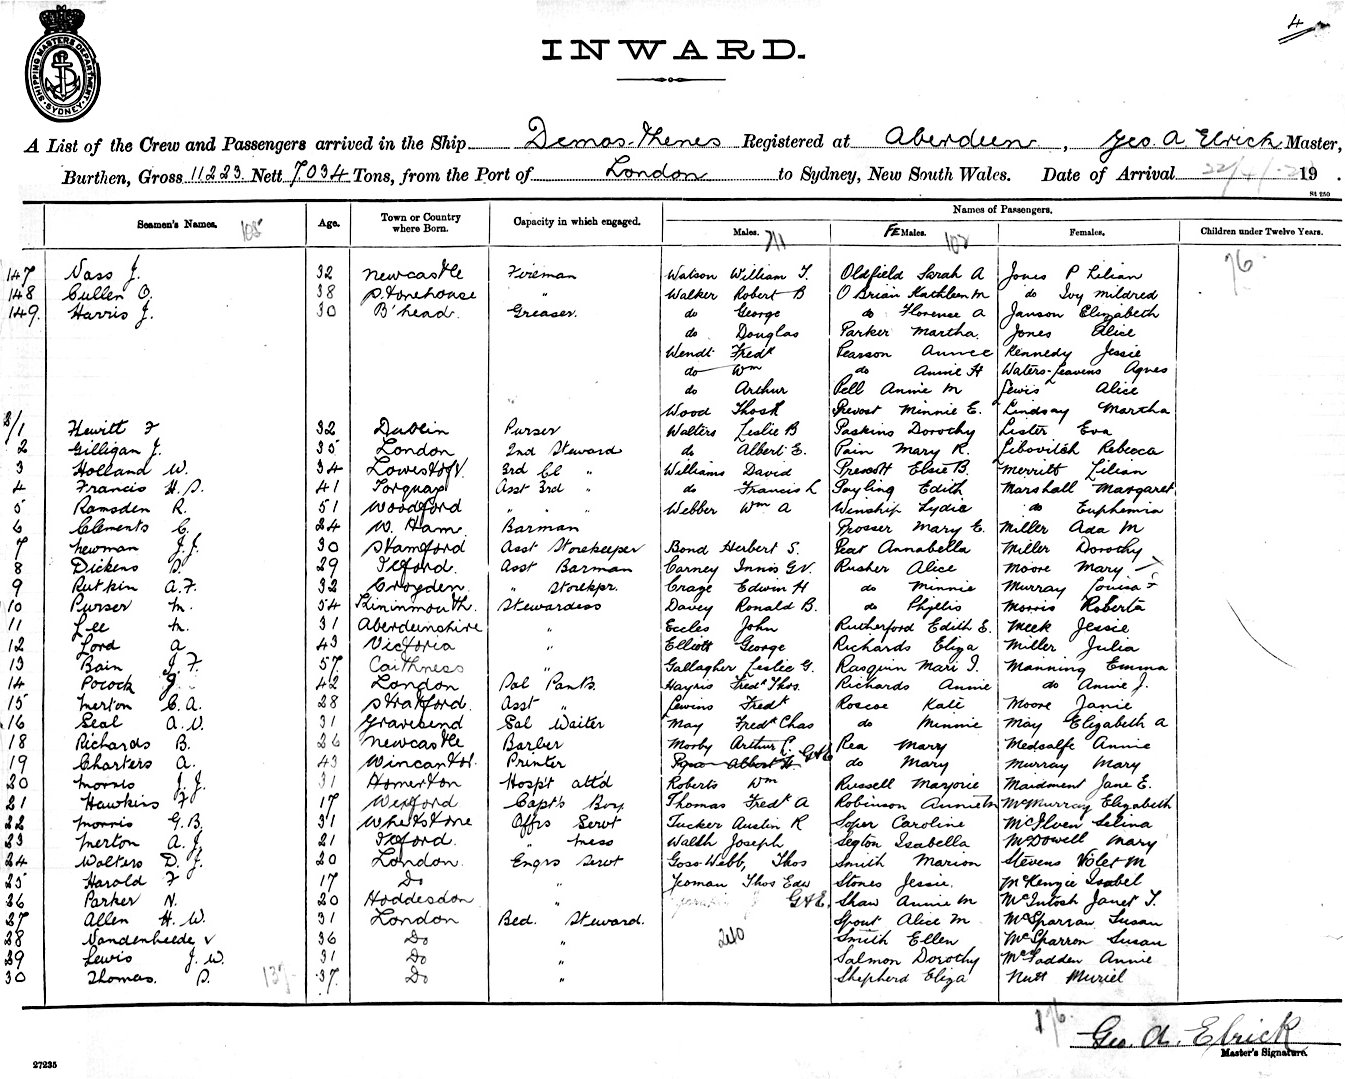 4
SHIPPING MASTERS DEPARTMENT SYDNEY
INWARD.
A List of the Crew and Passengers arrived in the Ship Demosthenes Registered at Aberdeen, Geo. A Elrick Master,
Burthen, Gross 11223 Nett 7034 Tons, from the Port of London to Sydney, New South Wales. Date of Arrival 22/4/ 19 .
Seamen's Names. Age. Town or Country where Born. Capacity in which engaged. Names of Passengers.
Males. FEMales. Females. Children under Twelve Years.
105 711 102 76
147 Nass J. 32 Newcastle Fireman Watson William T. Oldfield Sarah A Jones P Lilian
148 Cullen O. 38 Stonehouse " Walker Robert B O Brian Kathleen M do Ivy Mildred
149. Harris J. 30 B'head. Greaser. do George do Florence A Janson Elizabeth
do Douglas Parker Martha Jones Alice
Wendt Fredk Pearson Annie Kennedy Jessie
do Wm do Annie H Waters-Leavens Agnes
do Arthur Pell Annie M Lewis Alice
Wood Thos H Prevost Minnie E. Lindsay Martha
2/1 Hewitt F 32 Dublin Purser Walters Leslie B Paskins Dorothy Lister Eva
2 Gilligan J. 35 London 2nd Steward do Albert E. Pain Mary R. Libovitch Rebecca
3 Holland W. 34 Lowestoft. 3rd Cl " Williams David Prescott Elsie B. Merritt Lilian
4 Francis H.P. 41 Torquay Asst 3rd " do Francis L Payling Edith Marshall Margaret
5 Ramsden R. 51 Woodford " " " Webber Wm A Winship Lydia do Euphemia
6 Clements C. 24 W. Ham. Barman Prosser Mary E. Miller Ada M
7 Newman J.J. 30 Stamford Asst Storekeeper Bond Herbert S. Peat Annabella Miller Dorothy
8 Dickens P. 29 Ilford. Asst Barman Carney Innis G.V. Rusher Alice Moore Mary
9 Rutkin A.F. 32 Croyden " Storekpr. Crage Edwin H do Minnie Murray Louisa F
10 Purser M. 54 Kininmonth. Stewardess Davey Ronald B. do Phyllis Morris Roberta
11 Lee M. 31 Aberdeenshire " Eccles John Rutherford Edith E. Meek Jessie
12 Lord A 43 Victoria " Elliott George Richards Eliza Miller Julia
13 Bain J.F. 57 Caithness " Gallagher Leslie G. Rasquin Mari I. Manning Emma
14 Pocock J. 42 London Sal Pant. Hayris Fredk Thos. Richards Annie do Annie J.
15 Merton C.A. 28 Stratford. Asst " Lewins Fredk Roscoe Kate Moore Janie
16 Seal A.V. 31 Gravesend Sal Waiter May Fredk Chas do Minnie May Elizabeth A
18 Richards B. 26 Newcastle Barber Morby Arthur C. Rea Mary Medcalfe Annie
19 Charters A. 43 Wincanton. Printer Albert H G&E do Mary Murray Mary
20 Morris J.J. 31 Homerton Hospt attd Roberts Wm Russell Marjorie Maidment Jane E.
21 Hawkins F 17 Wexford Capt's Boy Thomas Fredk A Robinson Annie M McMurray Elizabeth
22 Morris G.B. 31 Whetstone Offrs Servt Tucker Austin R Soper Caroline McIlven Selina
23 Merton A.J. 21 Ilford. " Mess Walsh Joseph Segton Isabella McDowell Mary
24 Walters D.J. 20 London. Engrs Servt Goss Webb, Thos Smith Marion Stevens Violet M
25 Harold F 17 Do " Yeoman Thos Edw Stones Jessie. McKenzie Isabel
26 Parker N. 20 Hoddesdon " G&E. Shaw Annie M McIntosh Janet T.
27 Allen H.W. 31 London Bed. Steward. Spout Alice M. McSparran Susan
28 Vandenheede V 36 Do " 240 Smith Ellen McSparron Susan
29 Lewis J.W. 31 Do " Salmon Dorothy McFadden Annie
30 Thomas. P. 137 37. Do " Shepherd Eliza Nutt Muriel
176.
Geo. A. Elrick
Master's Signature.
27235